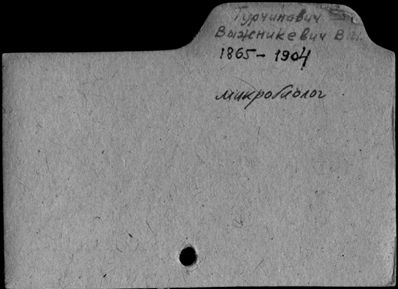 Турчинович
Выжникевич В.И.
1865 - 1904
микробиолог